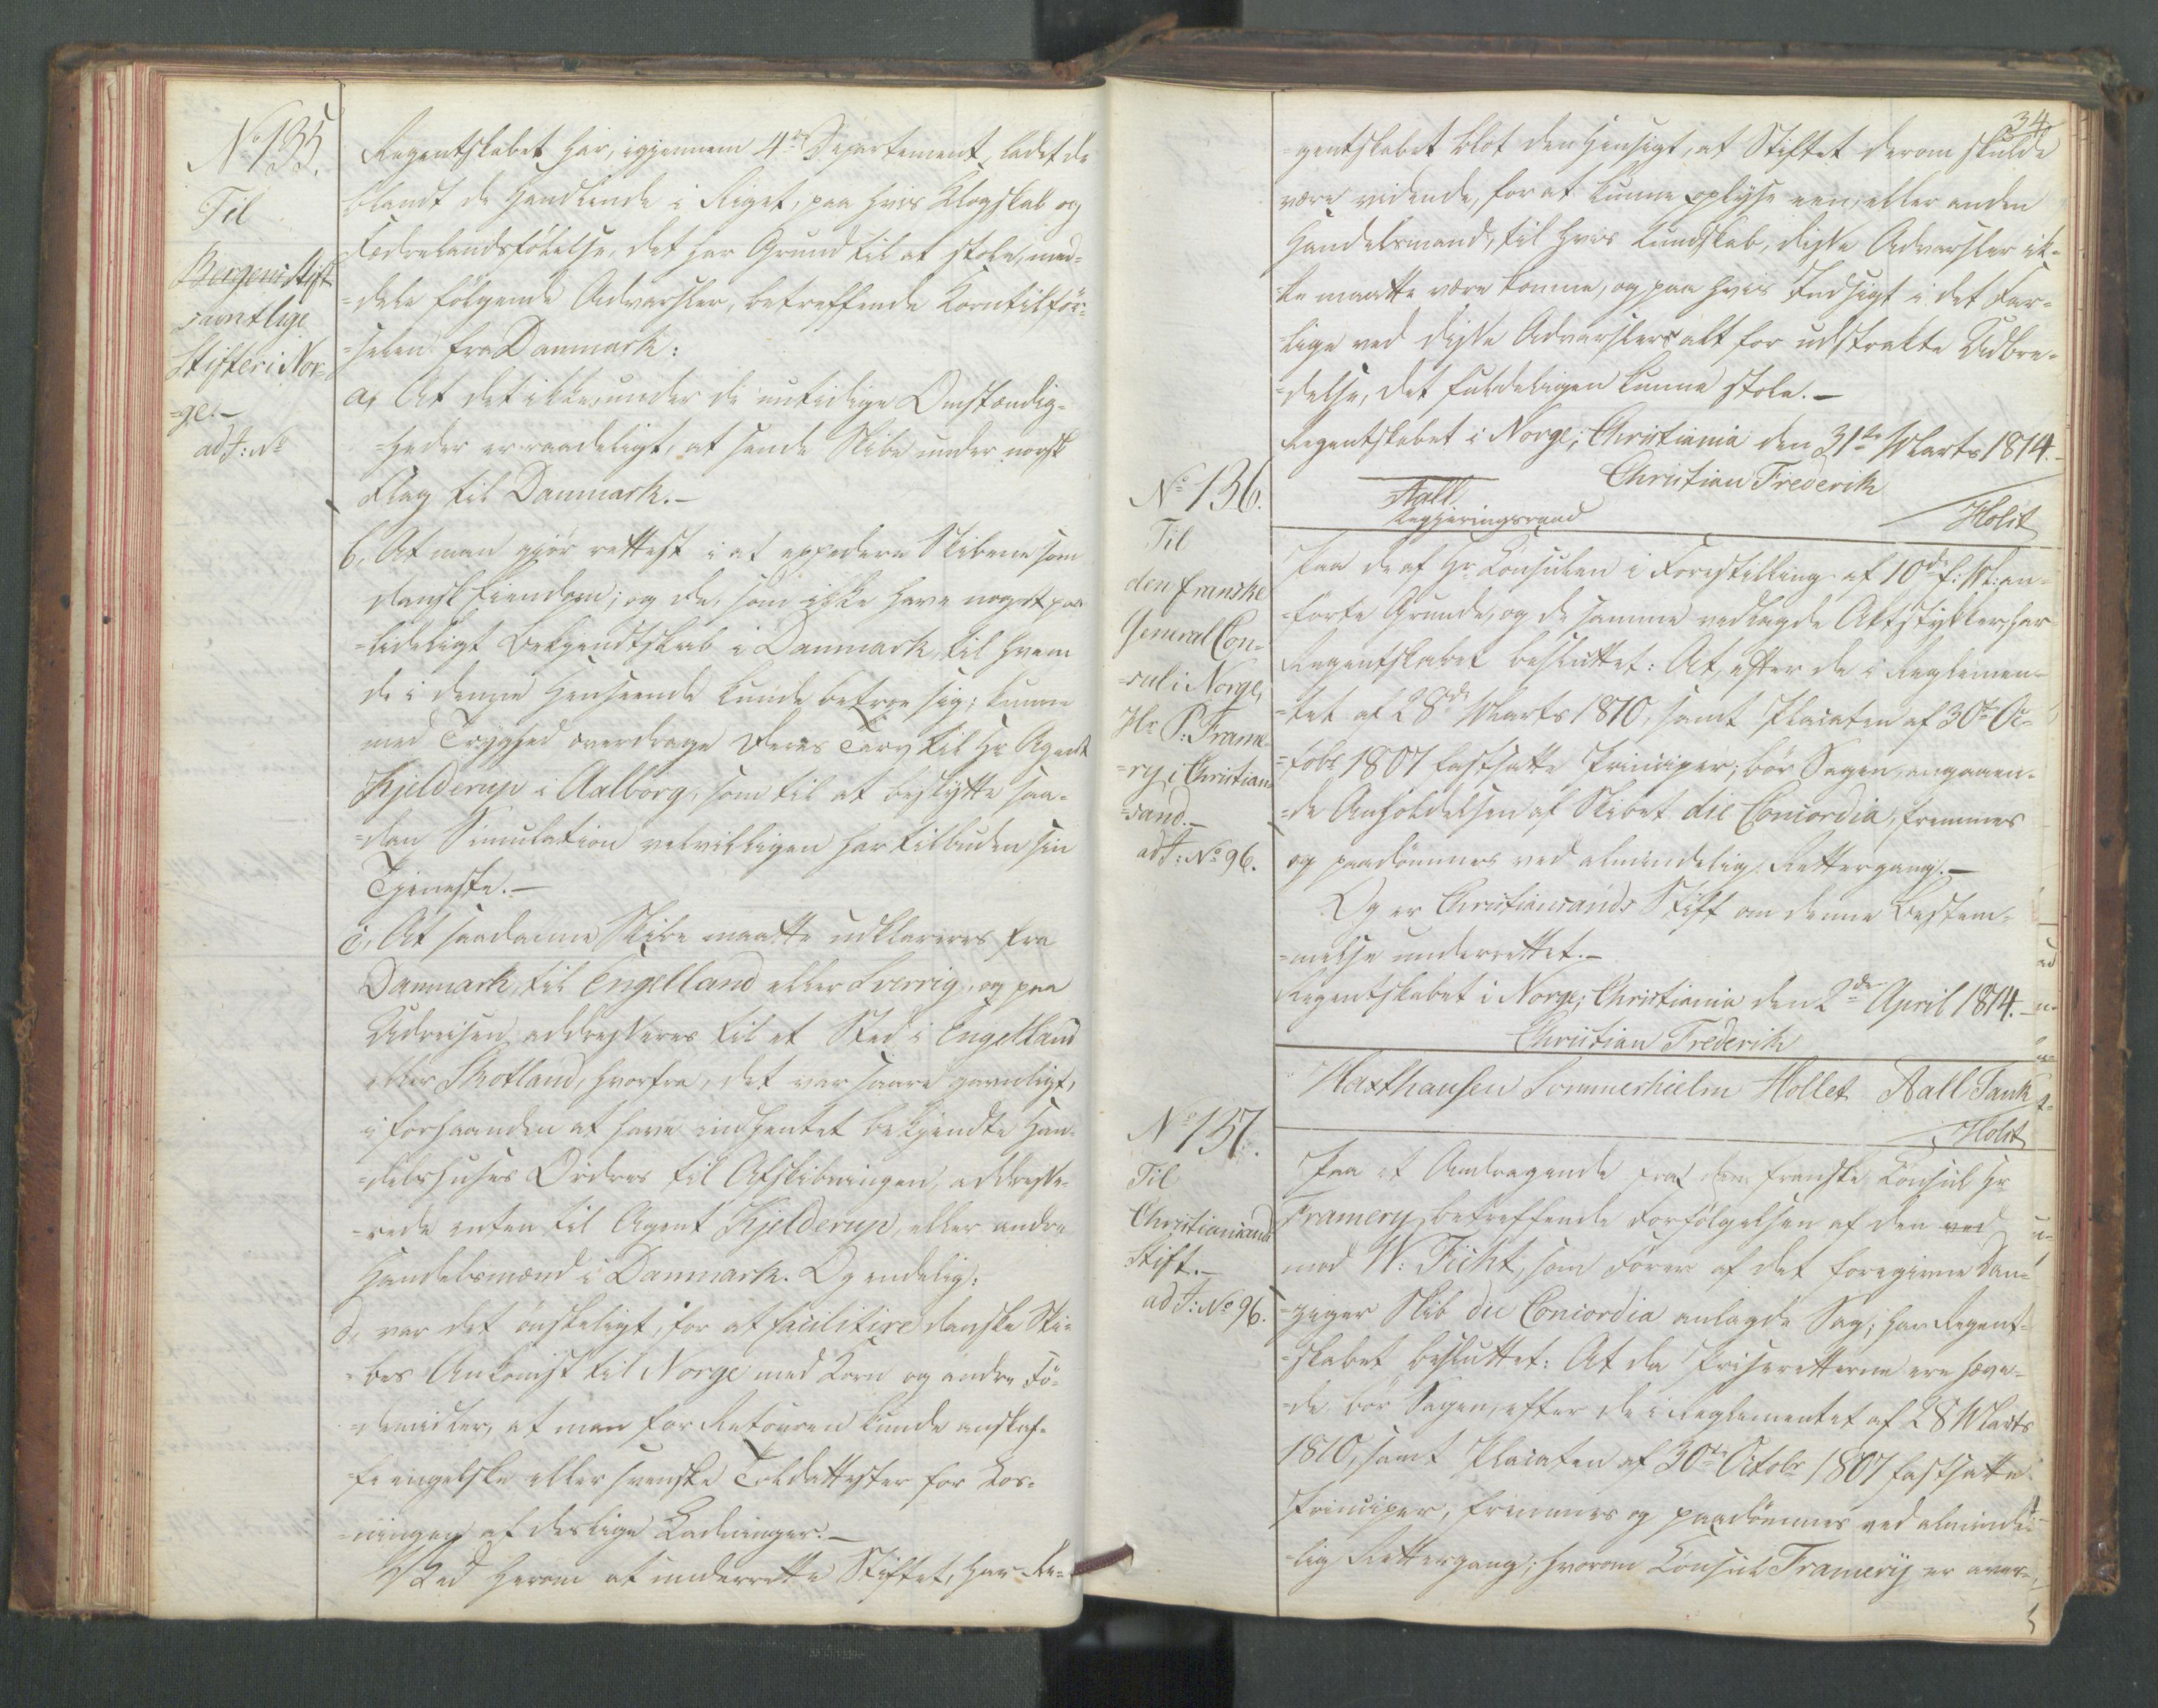 No 135.
Til
Bergens Stift
samtlige
Stifter i Nor-
=ge.-
ad J: No
Regentskabet har, igjennem 4de Departement, ladet de
blandt de Handlende i Riget, paa hvis Klogskab og
Fædrelandsfölelse, det har Grund til at stole, med-
=dele fölgende Advarsler, betreffende Korntilför-
=selen fra Danmark:
a, At det ikke, under de nutidige Omstændig-
=heder er raadeligt, at sende Skibe under norsk
Flag til Danmark.-
b, At man gjör rettest i at expedere Skibene som
dansk Eiendom; og de, som ikke have noget paa-
=lideligt Bekjendtskab i Danmark, til hvem
de i denne Henseende kunde betroe sig; kunne
med Tryghed overdrage deres Tarv til Hr Agent
Kjelderup i Aalborg, som til at beskytte saa-
=dan Simulation velvilligen har tilbuden sin
Tjeneste.-
c, At saadanne Skibe maatte udklareres fra
Danmark, til Engelland eller Sverrig, og paa
Udreisen addresseres til et Sted i Engelland
eller Skotland, hvorfra, det var saare gavnligt,
i forhaanden at have indhentet bekjendte Han-
=delshuses Ordres til Afskibningen, addresse-
=rede enten til Agent Kjelderup, eller andre
Handelsmænd i Danmark. Og endelig:
d, var det önskeligt, for at facilitere danske Ski-
=bes Ankomst til Norge med Korn og andre Fö-
=demidler, at man for Retouren kunde anskaf-
=fe engelske eller svenske Toldattester for Los-
=ningen af deslige Ladninger.-
Ved herom at underrette Stiftet, har Re-
34
=gentskabet blot den Hensigt, at Stiftet derom skulde
være vidende, for at kunne oplyse een, eller anden
Handelsmand, til hvis Kundskab, disse Advarsler ik-
=ke maatte være komne, og paa hvis Indsigt i det Far-
=lige ved disse Advarslers alt for udstrakte Udbre-
=delse, det fuldeligen kunne stole.-
Regentskabet i Norge; Christiania den 31te Marts 1814.-
Christian Frederik
Aall
Regjeringsraad
Holst
No 136.
Til
den franske
General Con-
=sul i Norge,
Hr P: Frame-
=ry, i Christian-
=sand.-
ad J: No 96.
Paa de af Hr Consulen i Forestilling af 10de f: M: an-
=förte Grunde, og de samme vedlagde Aktstykker, har
Regentskabet besluttet: At, efter de i Reglemen-
=tet af 28de Marts 1810, samt Placaten af 30te Oc-
=tobr 1807 fastsatte Principer; bör Sagen, angaaen-
=de Anholdelsen af Skibet die Concordia, fremmes
og paadömmes ved almindelig Rettergang.-
Og er Christiansands Stift om denne Bestem-
=melse underrettet.-
Regentskabet i Norge; Christiania den 2de April 1814.-
Christian Frederik
Haxthausen Sommerhielm Hollet Aall Tank
Holst
No 137.
Til
Christiansands
Stift.-
ad J: No 96.
Paa et Andragende fra den franske Consul Hr
Framery, betreffende Forfölgelsen af den ved
mod W: Ficht, som Förer af det foregivne Dan-
=ziger Skib die Concordia anlagde Sag; har Regent-
=skabet besluttet: At da Priseretterne ere hæve-
=de, bör Sagen, efter de i Reglementet af 28 Marts
1810, samt Placaten af 30te Octobr 1807 fastsatte
Principer, fremmes og paadömmes ved alminde-
=lig Rettergang; hvorom Consul Framery er aver-